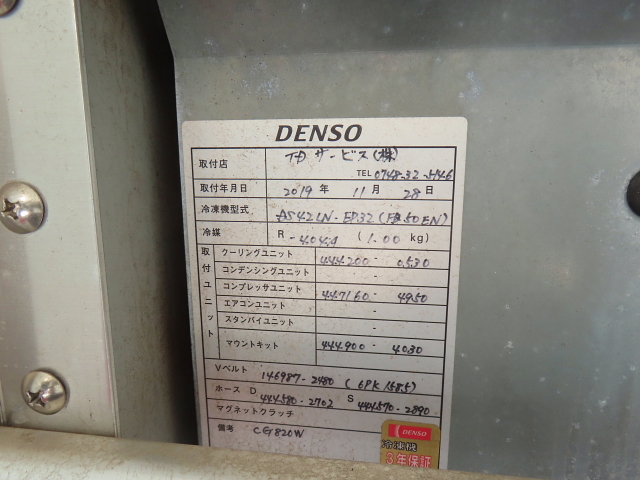 DENSO
取付店 TDサービス(株)
TEL 0748-32-5446
取付年月日 2019 年 11 月 28 日
冷凍機型式 AS42LN-
冷媒 R -404A (1.00 kg)
取付ユニット
クーリングユニット 444200- 0530
コンデンシングユニット -
コンプレッサユニット 447160- 4950
エアコンユニット -
スタンバイユニット -
マウントキット 444900- 4030
Vベルト 146987-2480 (6PK 1585)
ホース D 444580-2702 S 444570-2890
マグネットクラッチ
備考 CG1820W
DENSO
冷凍機
3年保証